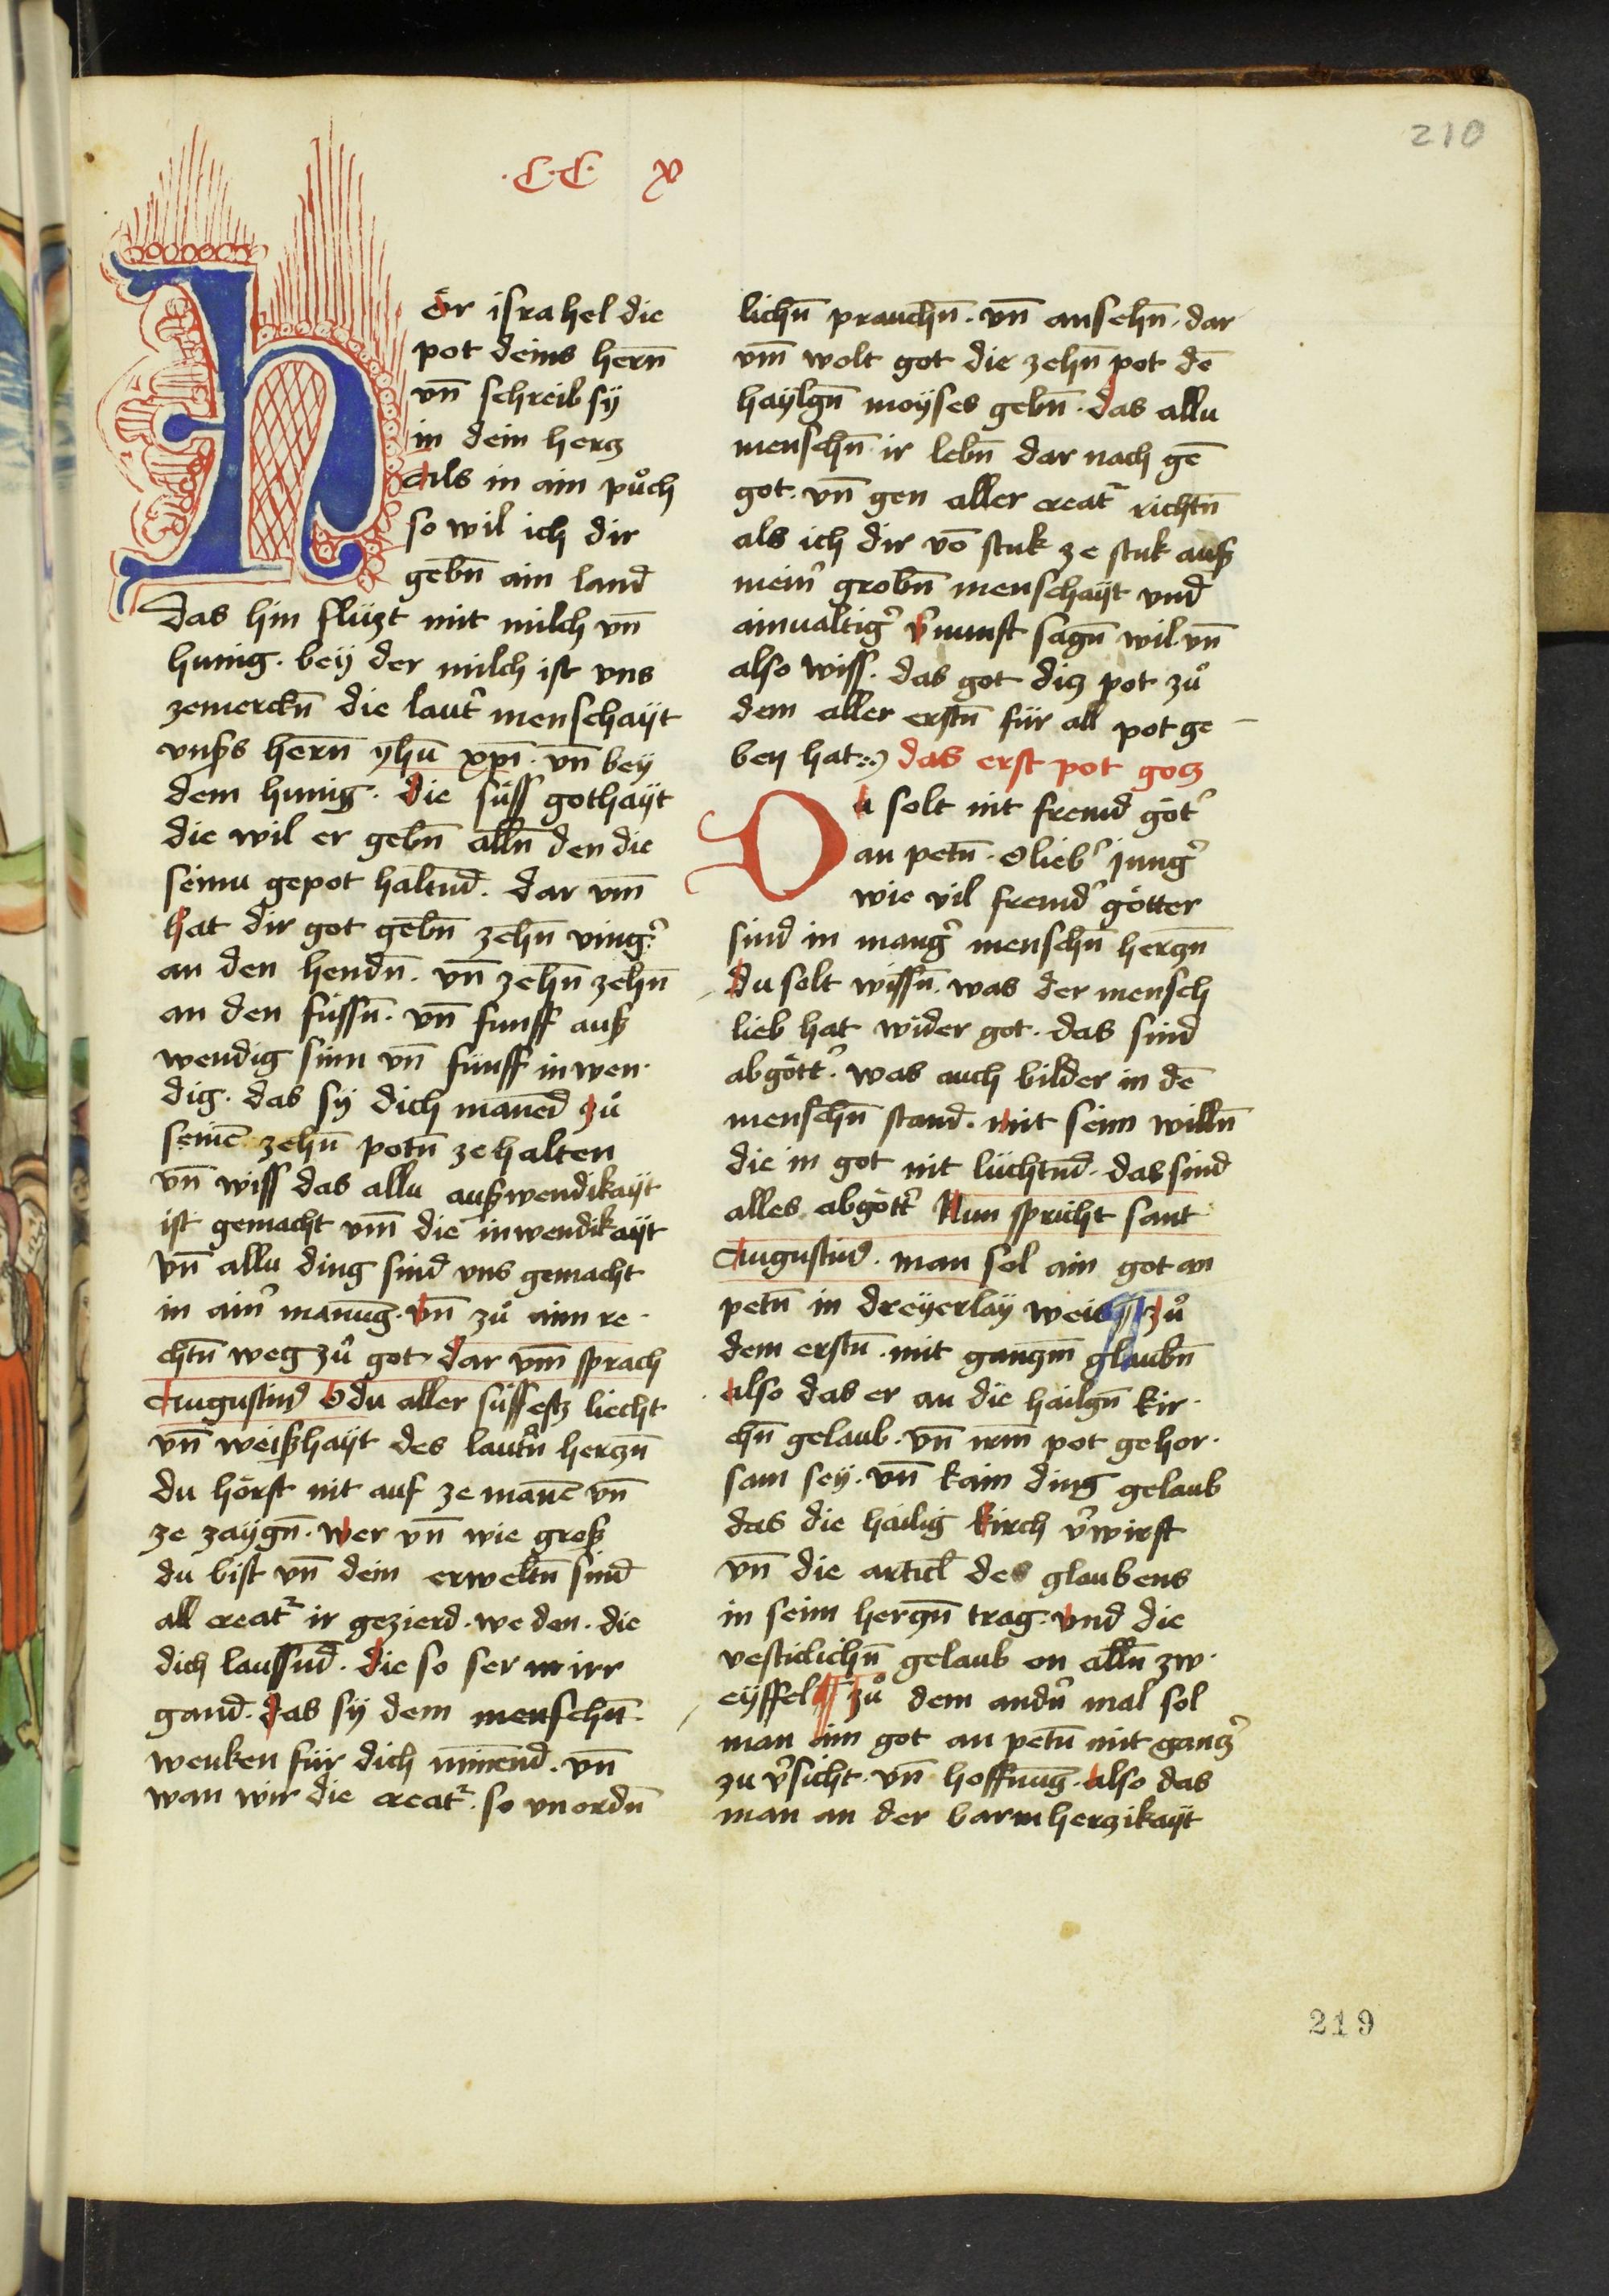 210
·C·C· x
Hör israhel die
pot deins hern̄
vn̄ schreib sÿ
in dein hercz
Als in ain pu̍ch
so wil ich dir
gebn̄ ain land
das hin flüzt mit milch vn̄
hunig. beÿ der milch ist vns
zemerckn̄ die laut̾ menschaÿt
vnsꝫs hern̄ ẏhū xp̄ı. vn̄ beÿ
dem hunig. die süss gothaÿt
die wil er gebn̄ alln̄ den die
seinu gepot haltn̄d. dar vm̄
hat dir got gebn̄ zehn̄ ving̾.
an den hendn̄. vn̄ zehn̄ zehn̄
an den füssn̄. vn̄ funff auß
wendig sinn vn̄ fünff inwen·
dig. das sÿ dich maned zů
seinē zehn̄ potn̄ ze halten
vn̄ wiss das allu außwendikaÿt
ist gemacht vm̄ die inwendikaÿt
vn̄ allu ding sind vns gemacht
in ain̾ manūg. vn̄ zů aim re·
chtn̄ weg zů got dar vm̄ sprach
Augustinꝰ O du aller süssestz liecht
vn̄ weißhaÿt des laut̾n herczn̄
du hörst nit auf ze manē vn̄
ze zaÿgn̄. wer vn̄ wie groß
du bist vn̄ dein erweltn̄ sind
all creat̾ ir gezierd. we den. die
dich laussn̄d. die so ser in irr
gand. das sÿ dem menschn̄
wenken für dich minn̄d. vn̄
wan wir die creat̾. so vnordn̄
lichn̄ prauchn̄. vn̄ ansehn̄. dar
vm̄ wolt got die zehn̄ pot dē
haÿlgn̄ moÿses gebn̄. das allu
menschn̄ ir lebn̄ dar nach gē
got. vn̄ gen aller creat̾ richtn̄
als ich dir vō stuk ze stuk auß
mein̾ grobn̄ menschaÿt vnd
ainualtig̾ v̾nunft sagn̄ wil. vn̄
also wiss. das got dicz pot zů
dem aller erstn̄ für all pot ge
ben hat :) das erst pot gocz
Du solt nit fremd göt̾
an petn̄. O lieb̾ jung̾
wie vil fremd̾ götter
sind in mang̾ menschn̄ herczn̄
du solt wissn̄. was der mensch
lieb hat wider got. das sind
abgött̾. was auch bilder in dē
menschn̄ stand. mit seim willn̄
die in got nit lüchtn̄d. das sind
alles abgött̾ Nun spricht sant
Augustinꝰ. man sol ain got an
petn̄ in dreÿerlaÿ weis ¶ zů
dem erstn̄. mit ganczm̄ glaubn̄
also das er an die hailgn̄ kir·
chn̄ gelaub. vn̄ irm̄ pot gehor·
sam seÿ. vn̄ kain ding gelaub
das die hailig kirch v̾wirft
vn̄ die articl̄ des glaubens
in seim herczn̄ trag. vnd die
vesticlichn̄ gelaub on alln̄ zw·
eÿffel ¶ zů dem andn̾ mal sol
man ain got an petn̄ mit gancz̾
zu v̾sicht. vn̄ hoffnūg. also das
man an der barmherczikaÿt
219